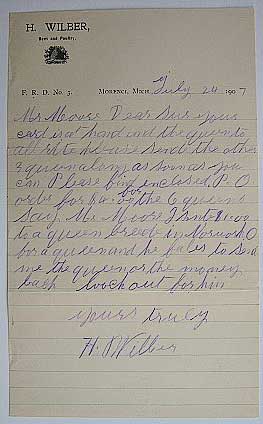 H. WILBER,
Bees and Poultry.
F. R. D. No. 3. MORENCI, MICH. July 24 1907
Mr Moore Dear Sur your
card is at hand and the queen to
all rd to he sure send the other
3 queen along as soon as you
can Please find enclosed P. O
order for $4.00 for the 6 queens
say Mr Moore I sent $1.00
to a queen breeder in Norwork O
for a queen and he fales to send
me the queen or the money
back look out for him
yours truly
H. Wilber